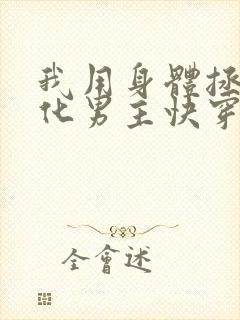 我用身體拯
化男主快穿
全會述